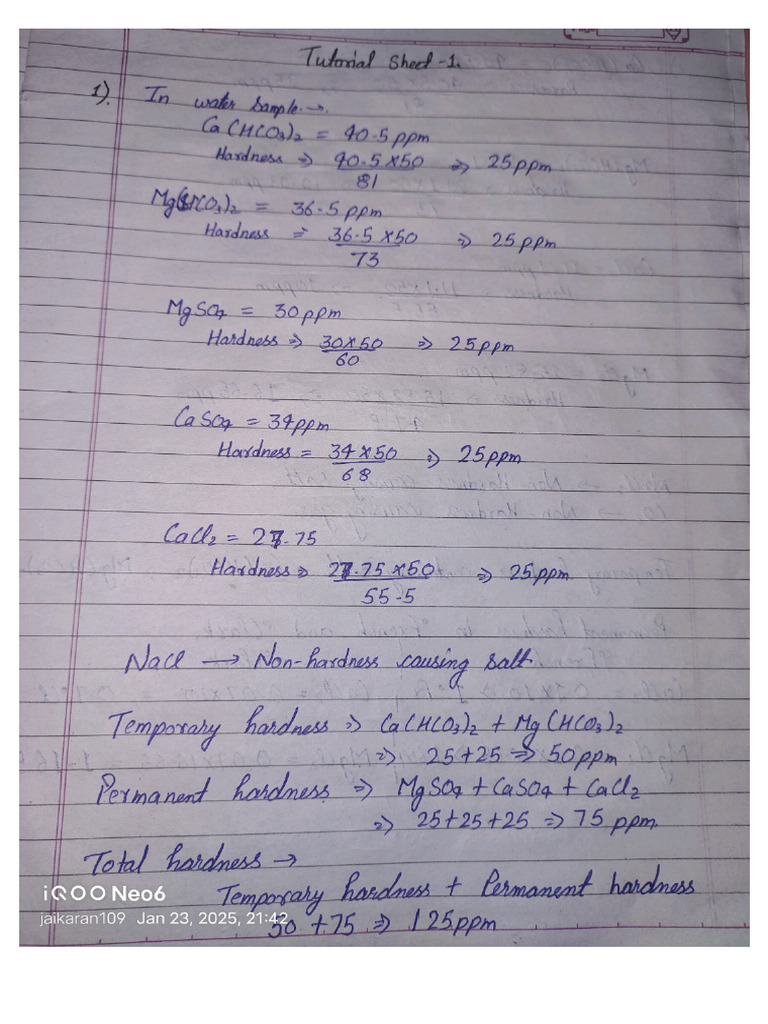 Tutorial Sheet-1.
1). In water sample →.
Ca(HCO3)2 = 40.5 ppm
Hardness ⇒ 40.5 × 50 / 81 ⇒ 25 ppm
Mg(HCO3)2 = 36.5 ppm
Hardness ⇒ 36.5 × 50 / 73 ⇒ 25 ppm
MgSO4 = 30 ppm
Hardness ⇒ 30×50 / 60 ⇒ 25 ppm
CaSO4 = 34 ppm
Hardness = 34 × 50 / 68 ⇒ 25 ppm
CaCl2 = 27.75
Hardness ⇒ 27.75 × 50 / 55.5 ⇒ 25 ppm
NaCl → Non-hardness causing salt
Temporary hardness ⇒ Ca(HCO3)2 + Mg(HCO3)2
⇒ 25+25 ⇒ 50 ppm
Permanent hardness ⇒ MgSO4 + CaSO4 + CaCl2
⇒ 25+25+25 ⇒ 75 ppm
Total hardness →
Temporary hardness + Permanent hardness
50 + 75 ⇒ 125 ppm
iQOO Neo6
jaikaran109 Jan 23, 2025, 21:42